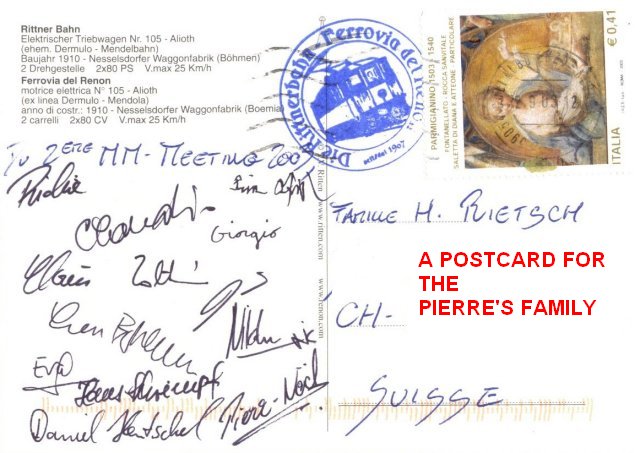 Rittner Bahn
Elektrischer Triebwagen Nr. 105 - Alioth
(ehem. Dermulo - Mendelbahn)
Baujahr 1910 - Nesselsdorfer Waggonfabrik (Böhmen)
2 Drehgestelle 2x80 PS V.max 25 Km/h
Ferrovia del Renon
motrice elettrica N° 105 - Alioth
(ex linea Dermulo - Mendola)
anno di costr.: 1910 - Nesselsdorfer Waggonfabrik (Boemia)
2 carrelli 2x80 CV V.max 25 Km/h
Die Rittnerbahn - Ferrovia del Renon
1907
PARMIGIANINO 1503 - 1540
FONTANELLATO - ROCCA SANVITALE
SALETTA DI DIANA E ATTEONE - PARTICOLARE
€ 0,41
ITALIA
MM - MEETING
Giorgio
Claus
Eva
Hans Schrempf
Daniel Hentschel
Pierre-Noël
www.ritten.com
www.renon.com
FAMILLE H. RIETSCH
A POSTCARD FOR
THE
PIERRE'S FAMILY
CH-
SUISSE